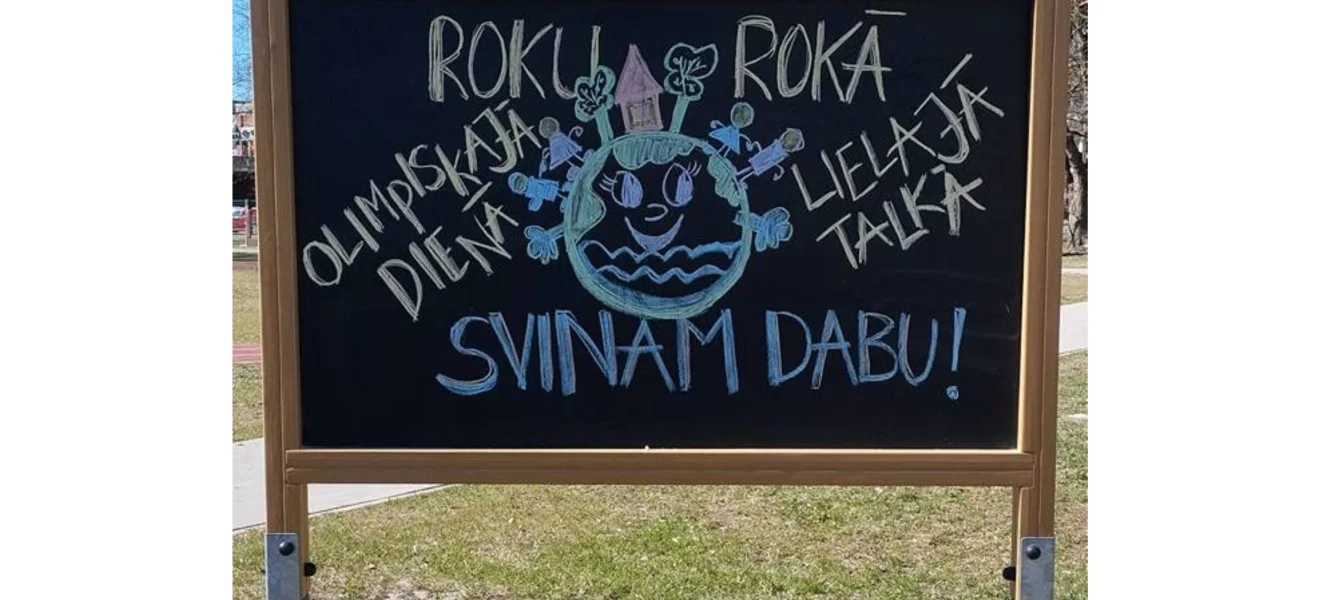 ROKU ROKĀ
OLIMPISKAJĀ
DIENĀ
LIELAJĀ
TALKĀ
SVINAM DABU!